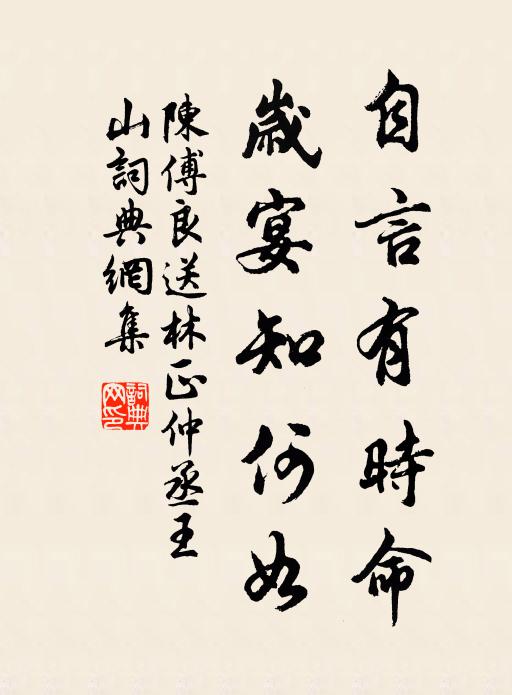 自言有時命
歲宴知何如
陳傅良送林正仲丞王
山詞典網集
詞典
网印